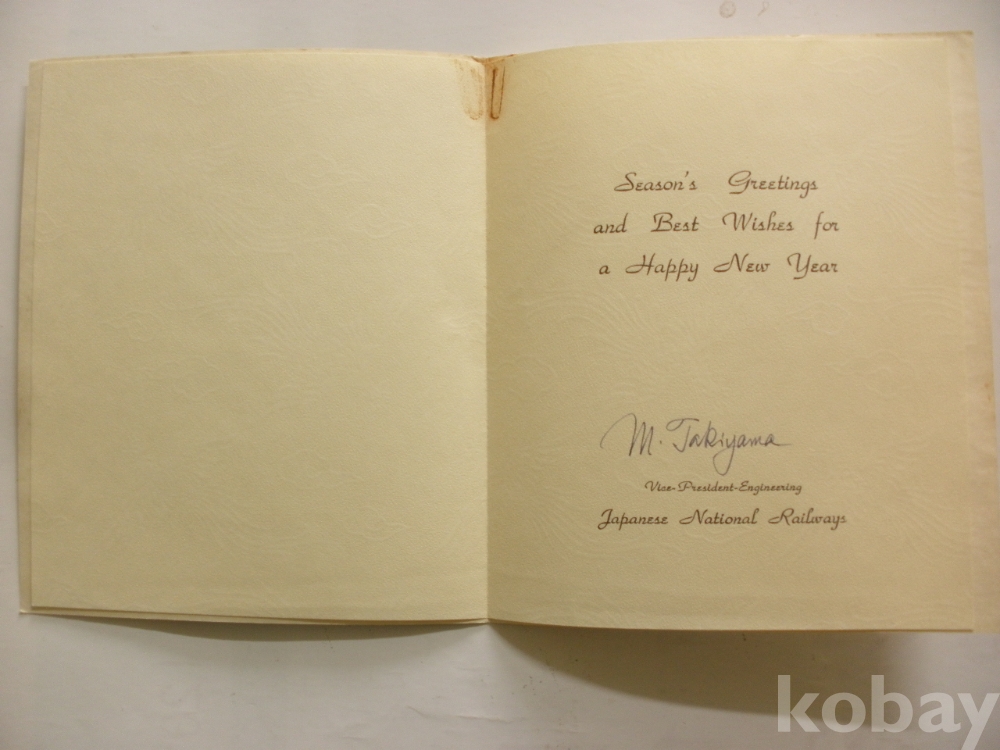 Season's Greetings
and Best Wishes for
a Happy New Year
M. Takiyama
Vice-President-Engineering
Japanese National Railways
kobay